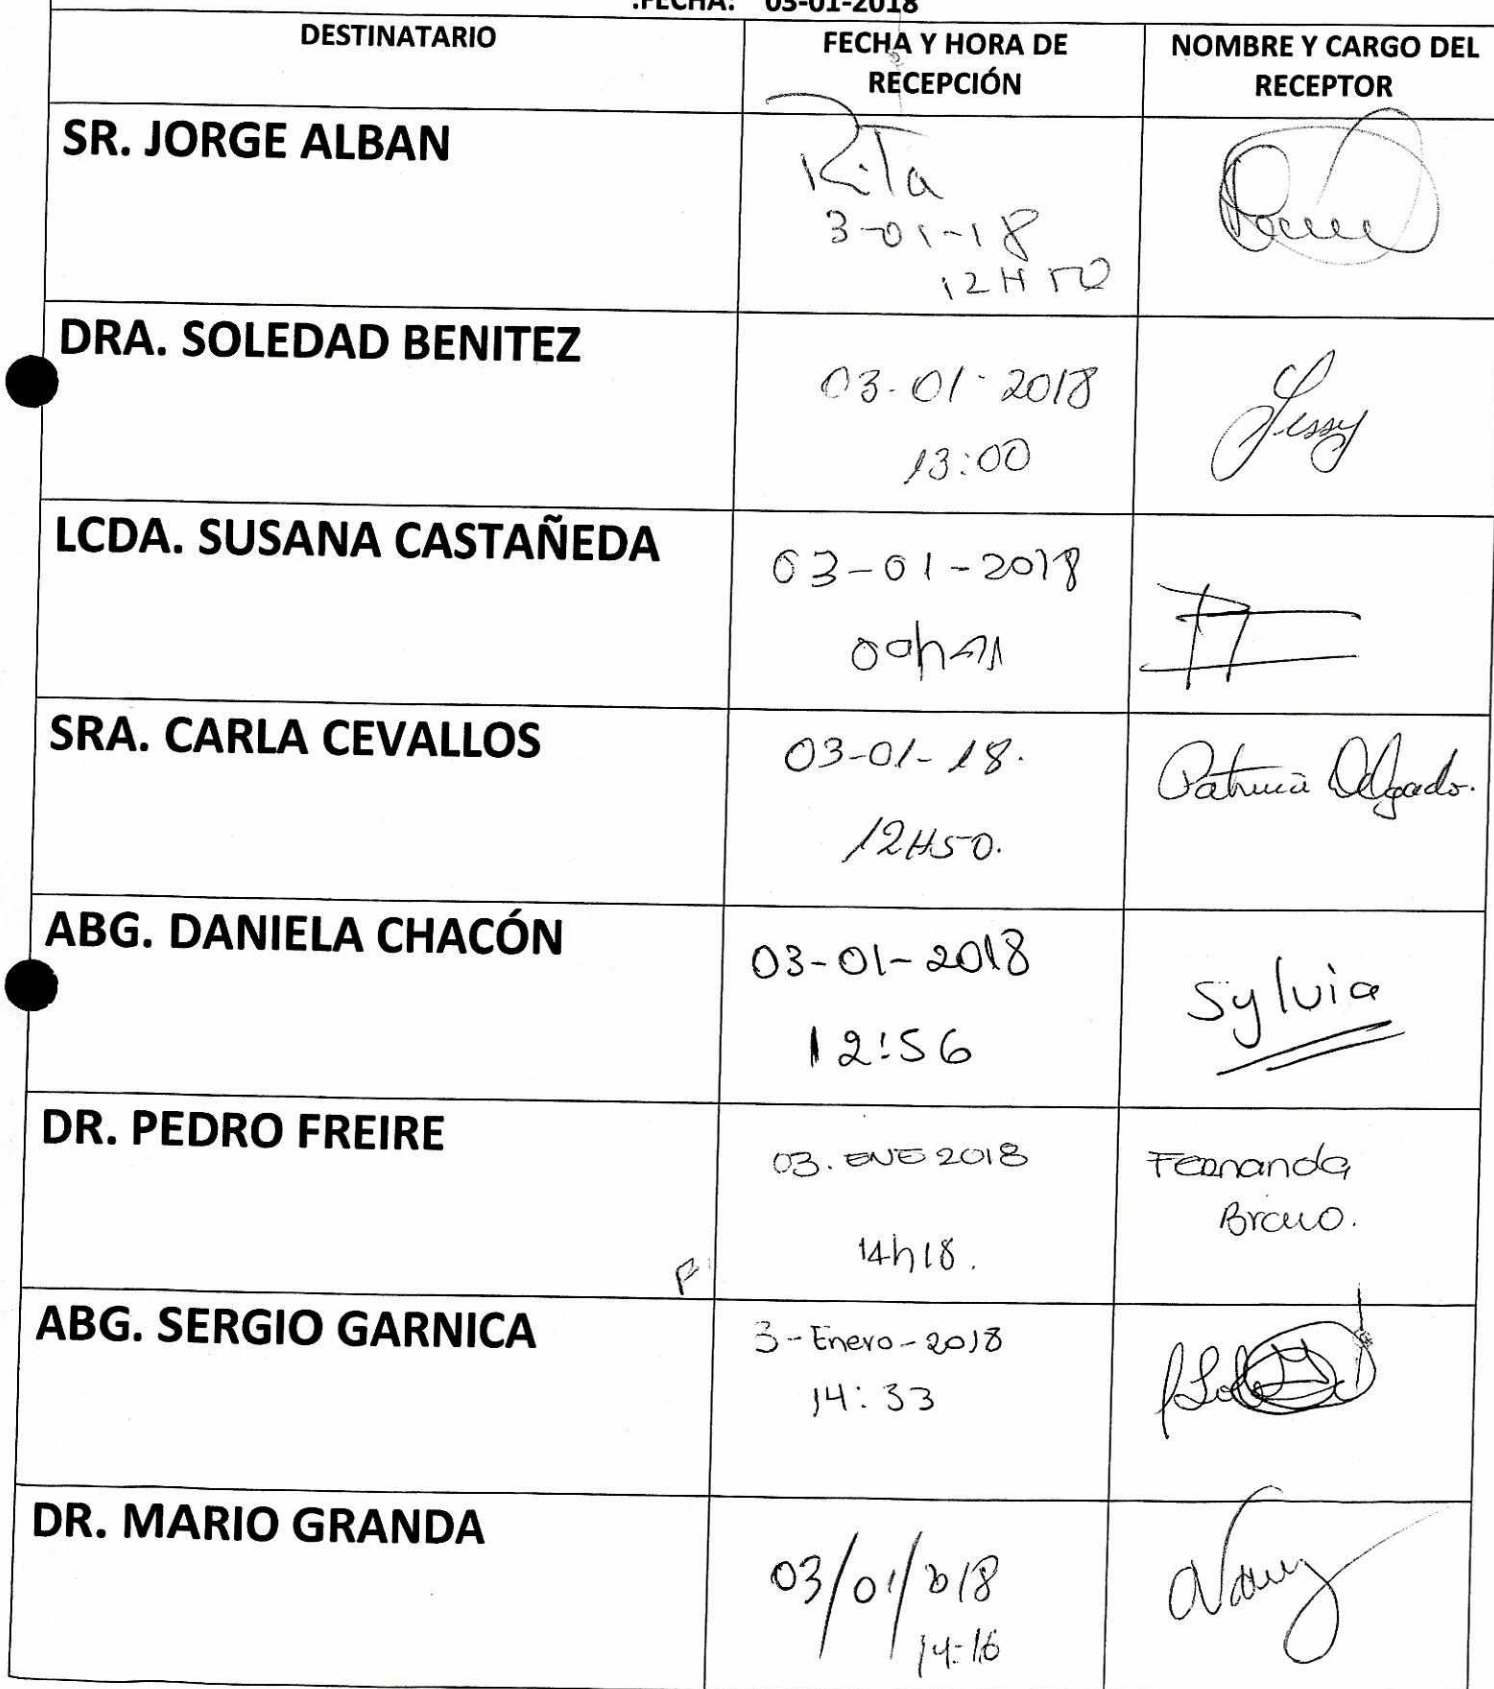 .FECHA: 03-01-2018
DESTINATARIO
FECHA Y HORA DE
RECEPCIÓN
NOMBRE Y CARGO DEL
RECEPTOR
SR. JORGE ALBAN
Rita
3-01-18
12H50
DRA. SOLEDAD BENITEZ
03-01-2018
13:00
Jessy
LCDA. SUSANA CASTAÑEDA
03-01-2018
SRA. CARLA CEVALLOS
03-01-18.
12H50.
Patricia Delgado.
ABG. DANIELA CHACÓN
03-01-2018
12:56
Sylvia
DR. PEDRO FREIRE
03. ENE 2018
14h18.
Fernanda
Bravo.
ABG. SERGIO GARNICA
3-Enero-2018
14:33
DR. MARIO GRANDA
03/01/2018
14:16